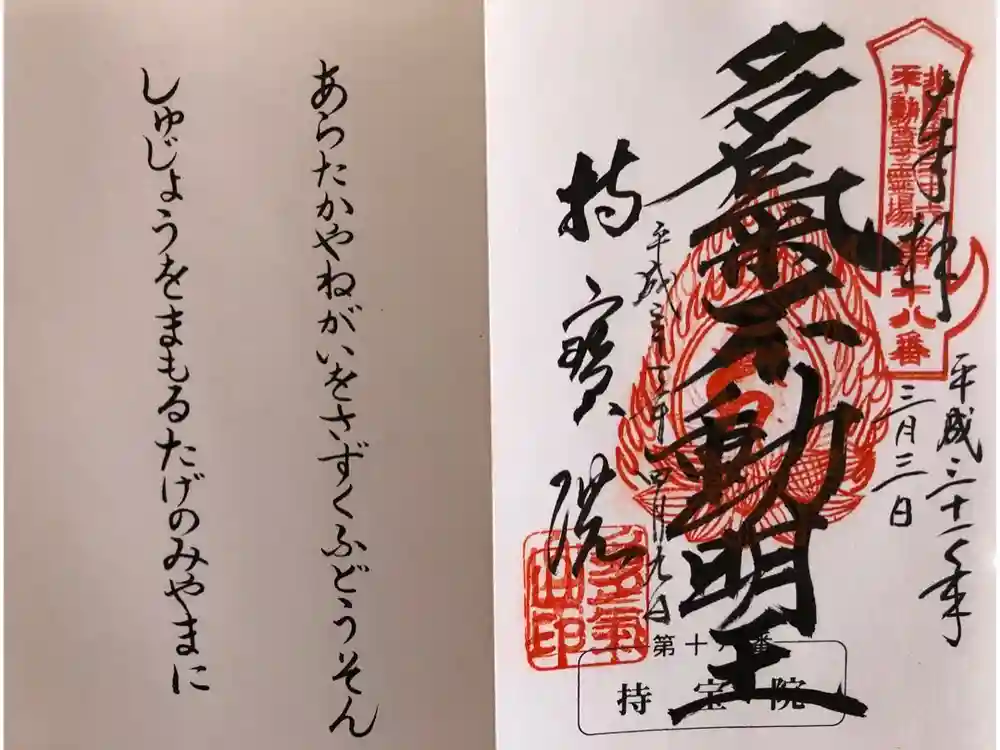 奉拝
平成三十一年
三月三日
北関東三十六
不動尊霊場
第十八番
多氣不動明王
平成三
四月九日
持寳院
多氣
山印
第十八番
持宝院
あらたかやねがいをさずくふどうそん
しゅじょうをまもるたげのみやまに